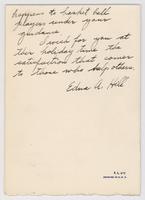 happens to basket ball
players under your
guidance.
I wish for you at
this holiday time the
satisfaction that comes
to those who help others.
Edna A. Hill